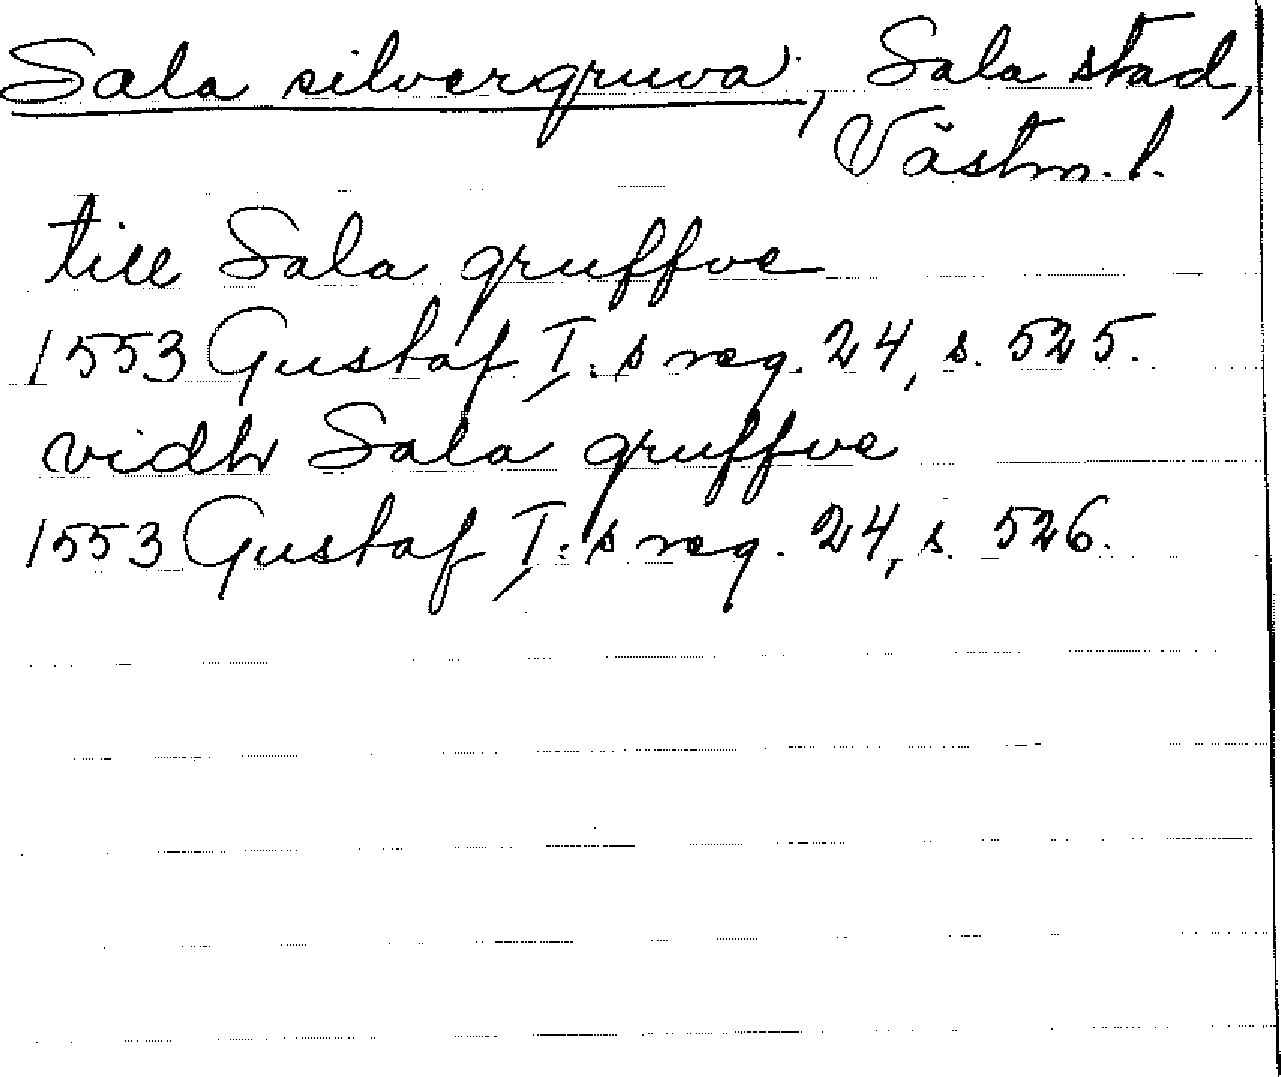 Sala silvergruva, Sala stad,
Västm. l.
till Sala gruffve
1553 Gustaf I:s reg. 24, s. 525.
vidh Sala gruffve
1553 Gustaf I:s reg. 24, s. 526.